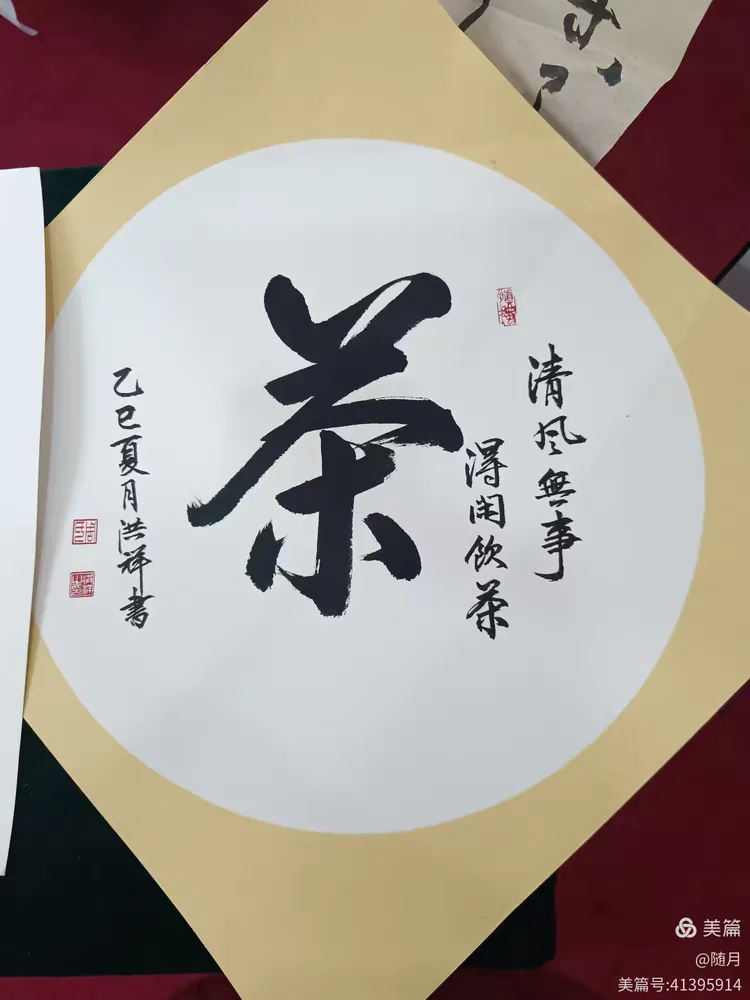 清风無事
得闲飲茶
茶
乙巳夏月洪祥書
美篇
@随月
美篇号:41395914